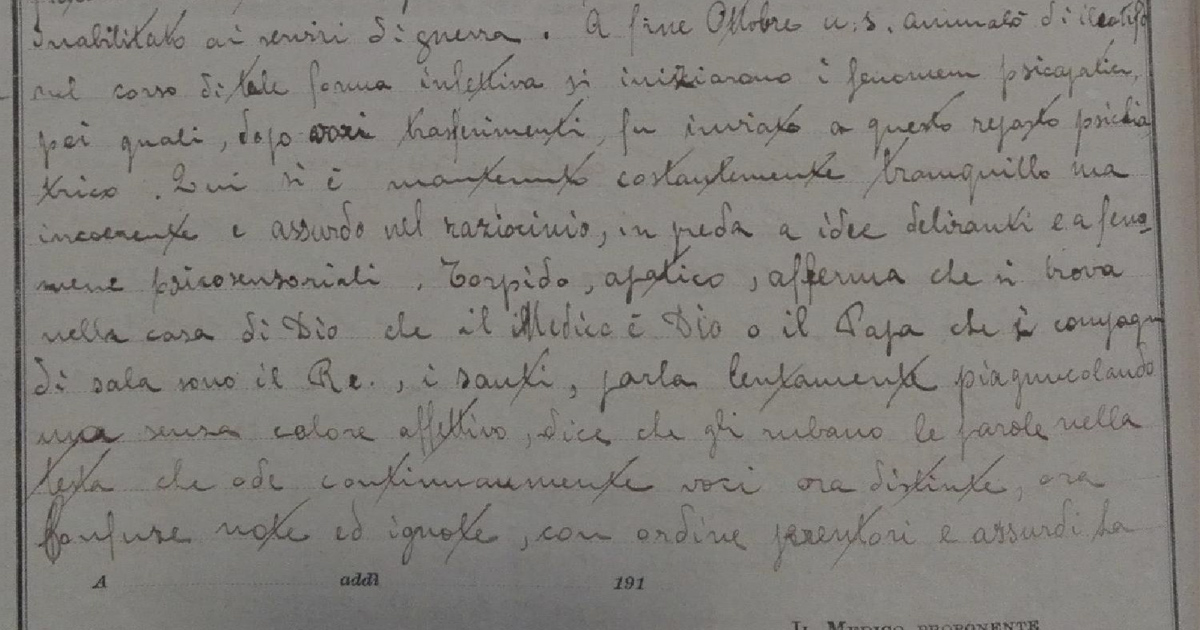 inabilitato ai servizi di guerra. A fine Ottobre u.s. ammalò di ileotifo
nel corso di tale forma infettiva si iniziarono i fenomeni psicopatici,
pei quali, dopo varii trasferimenti, fu inviato a questo reparto psichia
trico. Qui si è mantenuto costantemente tranquillo ma
incoerente e assurdo nel raziocinio, in preda a idee deliranti e a feno
mene psicosensoriali. Torpido, apatico, afferma che si trova
nella casa di Dio che il Medico è Dio o il Papa che i compagni
di sala sono il Re., i santi, parla lentamente piagnucolando
ma senza colore affettivo, dice che gli rubano le parole nella
testa che ode continuamente voci ora distinte, ora
confuse note ed ignote, con ordine perentori e assurdi ha
A addì 191
IL MEDICO PROPONENTE